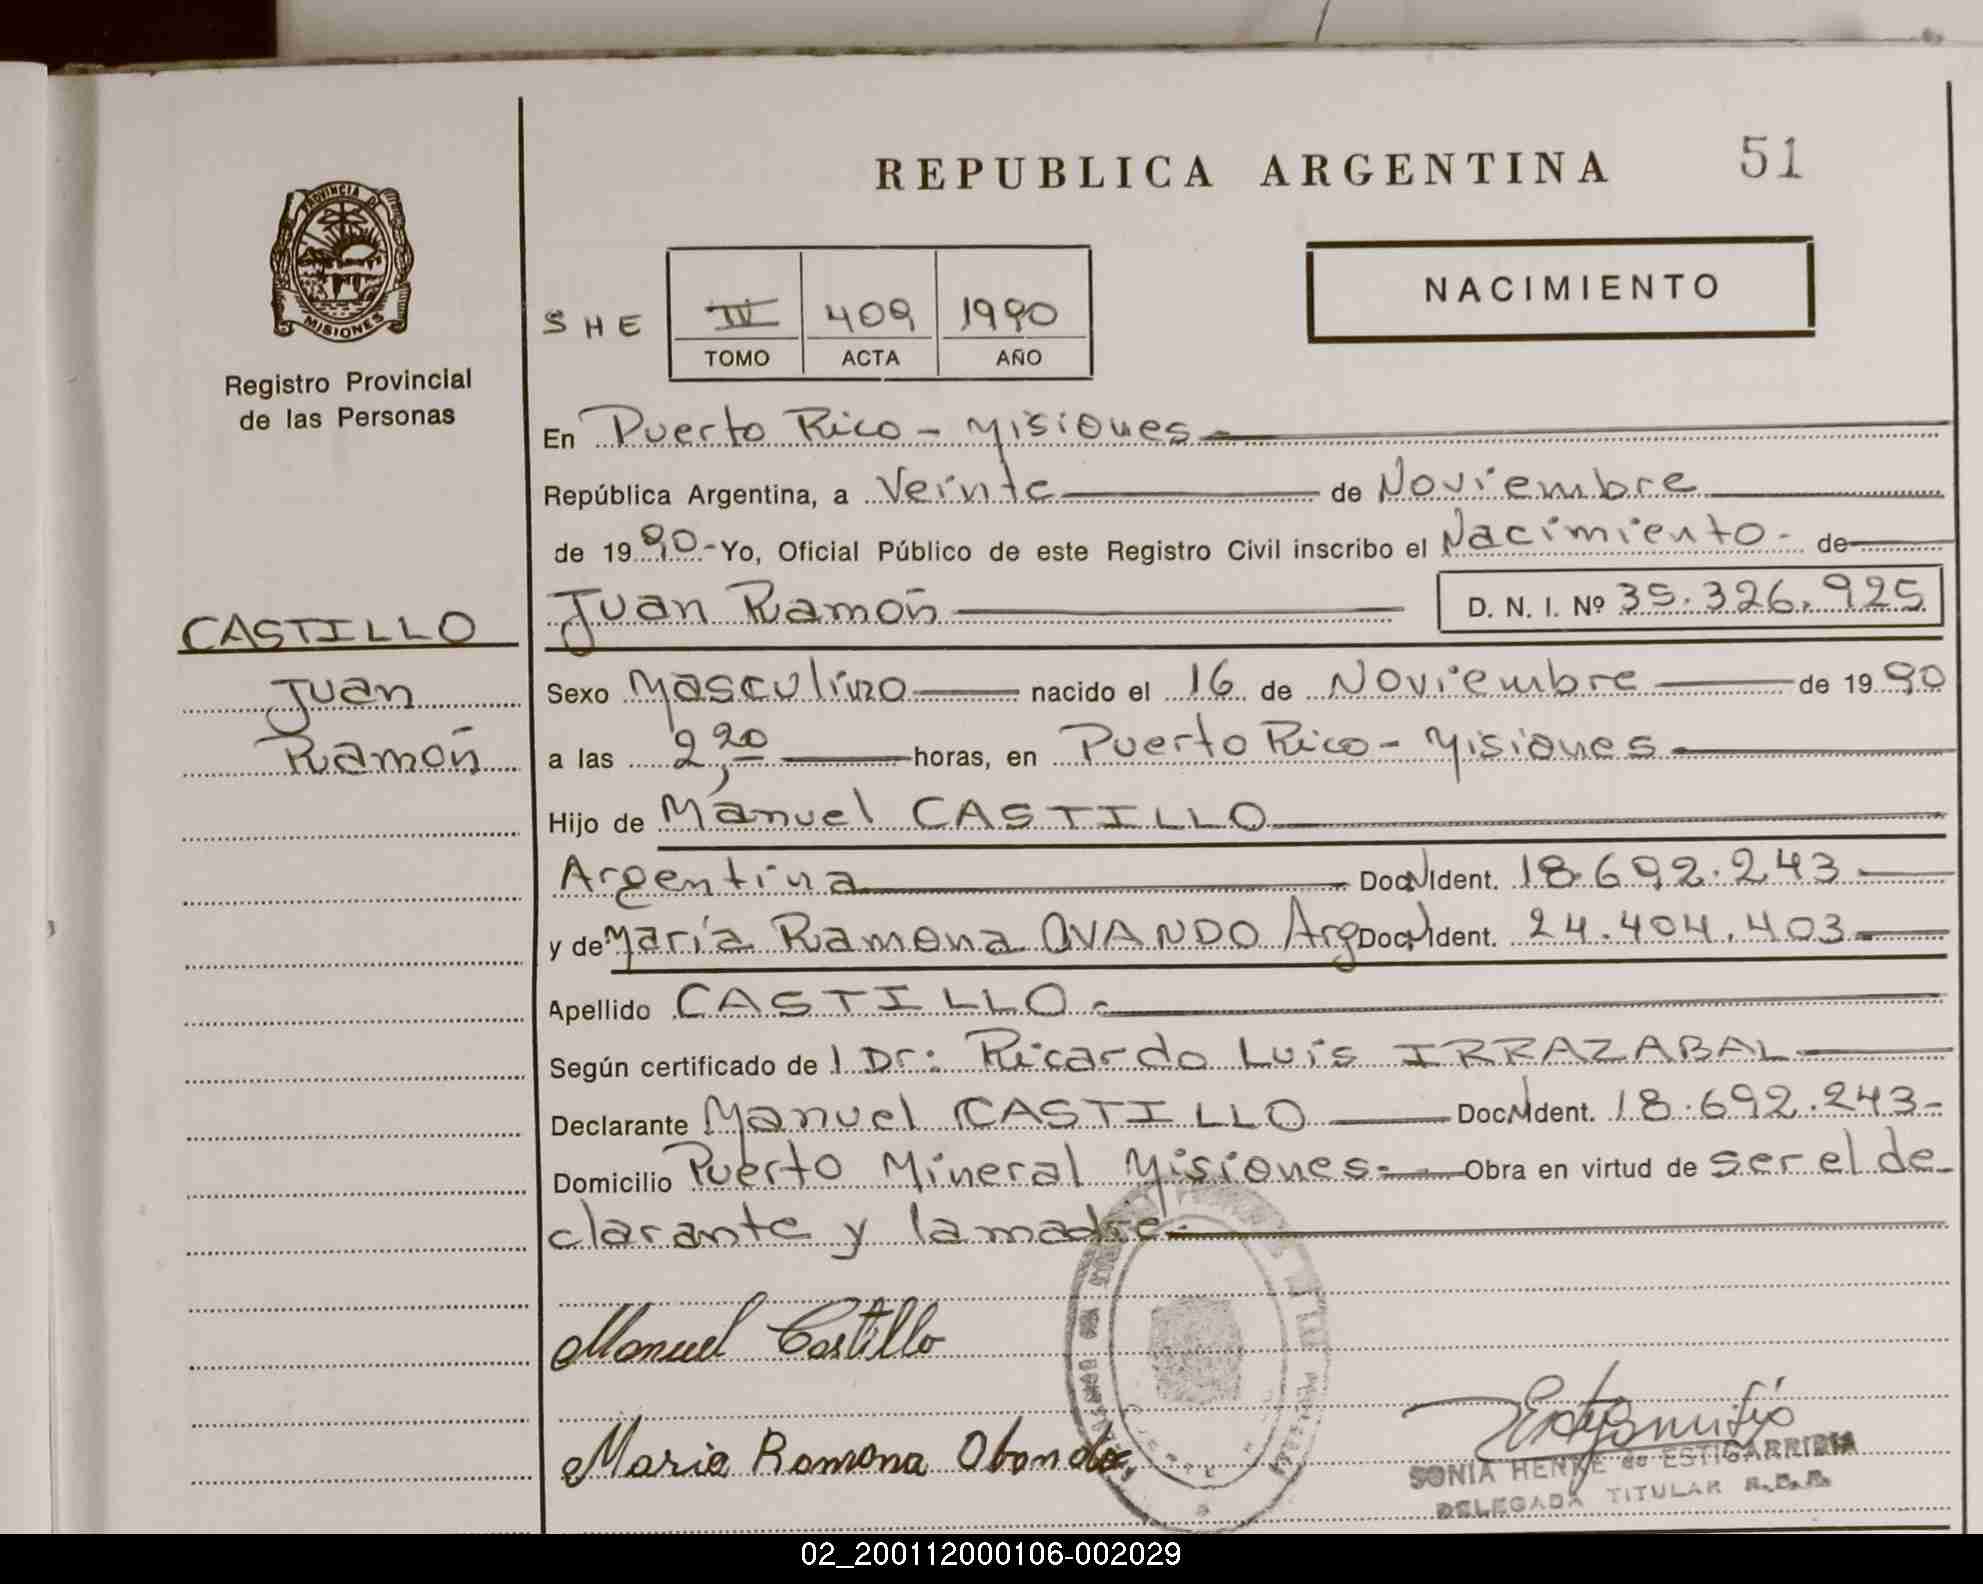 REPUBLICA ARGENTINA 51
PROVINCIA DE
MISIONES
Registro Provincial
de las Personas
NACIMIENTO
S H E
IV 409 1990
TOMO ACTA AÑO
En Puerto Rico - Misiones
República Argentina, a Veinte de Noviembre
de 1990.- Yo, Oficial Público de este Registro Civil inscribo el Nacimiento - de
CASTILLO
Juan
Ramón
Juan Ramón D. N. I. Nº 35.326.925
Sexo Masculino nacido el 16 de Noviembre de 1990
a las 2,20 horas, en Puerto Rico - Misiones
Hijo de Manuel CASTILLO
Argentina Doc. N Ident. 18.692.243
y de María Ramona OVANDO Arg. Doc. N Ident. 24.404.403
Apellido CASTILLO.-
Según certificado de l Dr: Ricardo Luis IRRAZABAL
Declarante Manuel CASTILLO Doc. N Ident. 18.692.243-
Domicilio Puerto Mineral Misiones.- Obra en virtud de ser el de-
clarante y la madre.-
Manuel Castillo
Maria Ramona Obando
SONIA HENKE de ESTIGARRIBIA
DELEGADA TITULAR
02_200112000106-002029